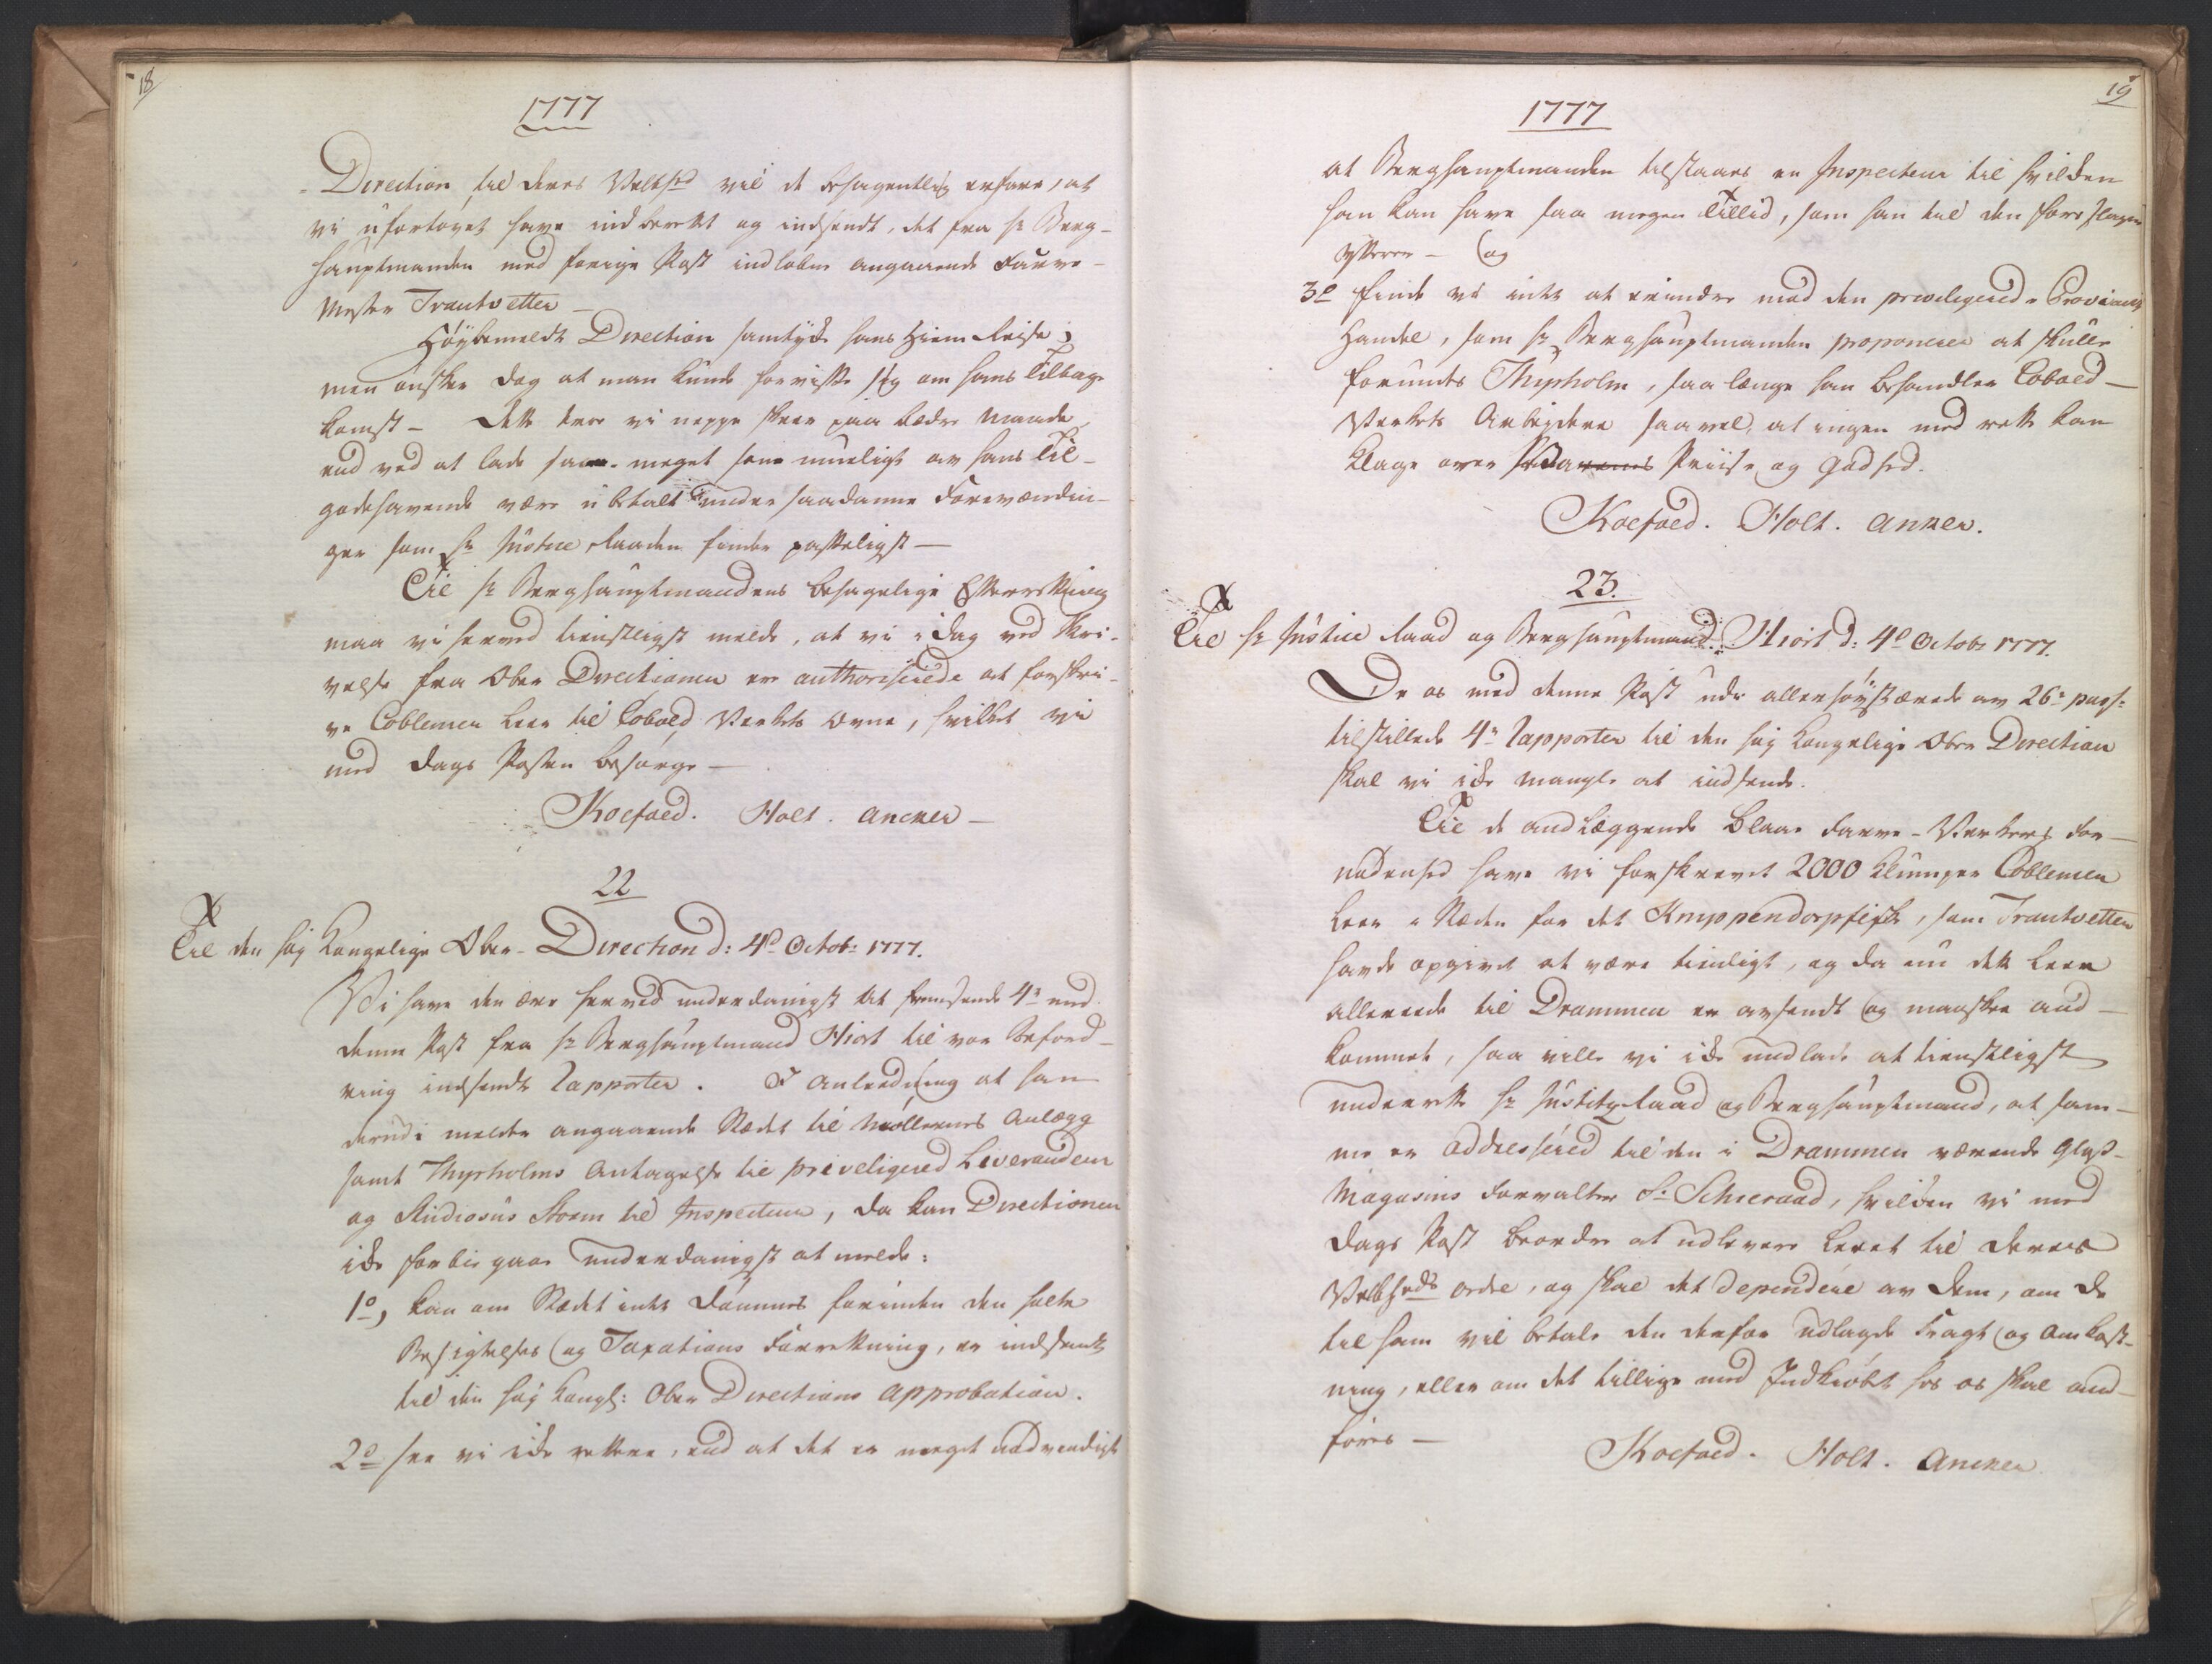 18
1777
Direction til deres Velbhd vil de behagentlig erfare, at
vi ufortøvet have indberettet og indsendt, det fra Hr Berg-
hauptmanden med forrige Post indløbne angaaende Farve-
Mester Trautvetter
Høybemeldte Direction samtyder hans Hiem Reise;
men ønsker dog at man kunde forviste sig om hans Tilbage
komst - Dette troer vi neppe skeer paa bedre Maade,
end ved at lade saa meget som mueligt av hans Til-
godehavende være ubetalt under saadanne Forevendin-
ger som Hr Justice Raaden finder passeligst —
Til Hr Berghauptmandens behagelige Efterretning
maa vi herved tienstligst melde, at vi i dag ved Skri-
velse fra Ober Directionen er authoriserede at forskri-
ve Coblenzer Leer til Cobold Verkets Ovne, hvilket vi
med dags Posten besørge —
Koefoed. Holt. Ancker —
22
Til den høy Kongelige Ober-Direction d: 4d Octob: 1777.
Vi have den ære herved underdanigst at fremsende 4re med
denne Post fra Hr Berghauptmand Hiort til vor Beford-
ring indsendte Rapporter. I Anledning at han
derudi melder angaaende Stædet til Møllernes Anlægg
samt Thyrholms Antagelse til priveligered Leverandeur
og Studiosus Storm til Inspecteur, da kan Directionen
ike forbiegaae underdanigst at melde:
1o, kan om Stædet intet dømmes forinden den holte
Besigtelses og Taxations Forretning, er indsendt
til den høy Kongl: Ober Directions Approbation.
2o see vi ike rettere, end at det er meget nødvendigt
19
1777
at Berghauptmanden tilstaaes en Inspecteur til hvilken
han kan have saa megen Tillid, som han til den foreslagne
yttrer — og
3o finde vi intet at erindre mod den priveligerede Proviant
Handel, som Hr Berghauptmanden proponerer at skulle
forundes Thyrholm, saa længe han behandler Cobold-
Verkets Arbeydere saavel, at ingen med rette kan
klage over Priise og Godhed.
Koefoed. Holt. Anker.
23.
Til Hr Justice Raad og Berghauptmand Hiort d: 4d Octobr 1777.
De os med denne Post udi allerhøystærede av 26de pass:
tilstillede 4re Rapporter til den høy Kongelige Ober Direction
skal vi ike mangle at indsende.
Til de andlæggende Blaae Farve-Verkers For-
nødenhed have vi forskrevet 2000 Klumper Coblenzer
Leer i Stæden for det Knippendorpfiske, som Trautvetter
havde opgivet at være tienligt, og da nu dette Leer
allerede til Drammen er avsendt og maaskee and-
kommet, saa ville vi ike undlade at tienstligst
underrette Hr Justitz Raad og Berghauptmand, at sam-
me er addressered til den i Drammen værende Glas-
Magasins Forvalter Sr Schieraad, hvilken vi med
dags Post beordre at udlevere Leeret til Deres
Velbhds ordre, og skal det dependere av dem, om De
til ham vil betale den derfor udlagde Fragt og Omkost-
ning, eller om det tillige med Indkiøbet hos os skal and-
føres —
Koefoed. Holt. Ancker